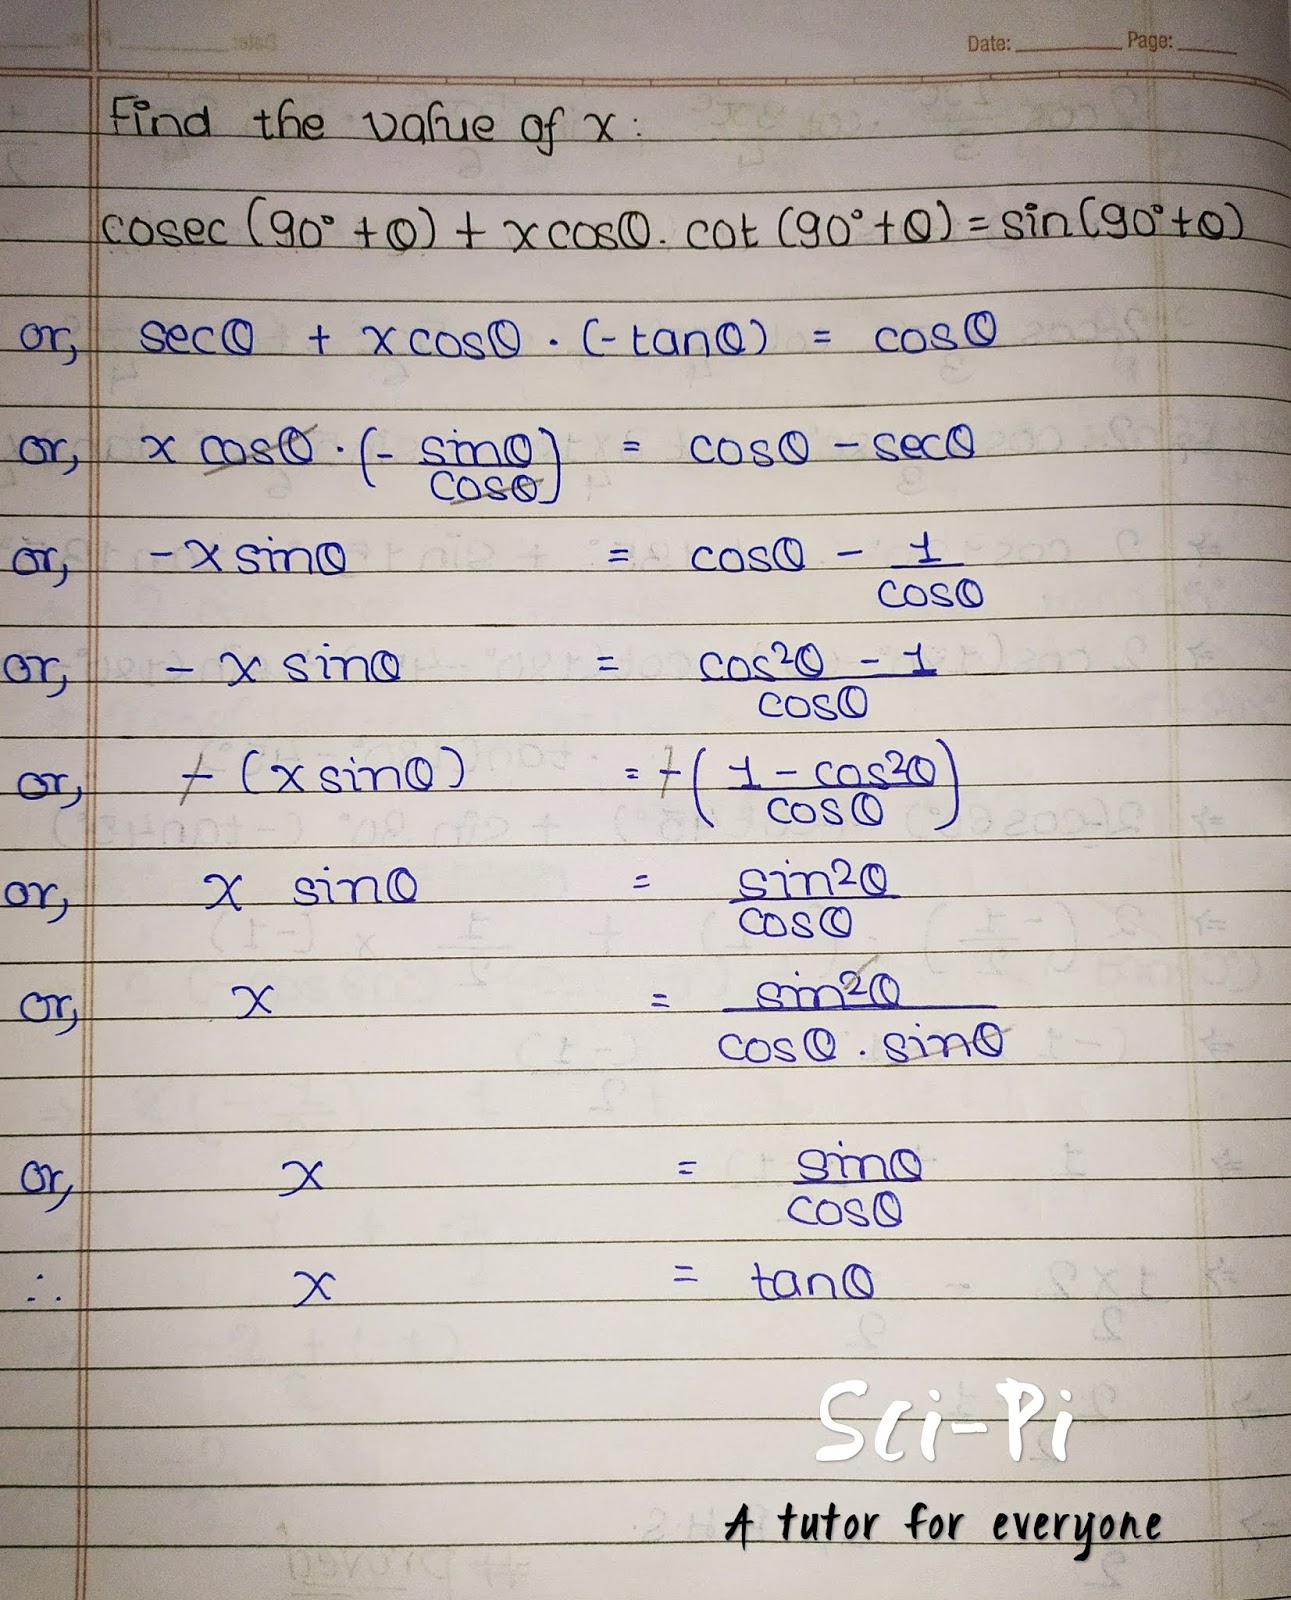 Date: Page:
Find the value of x:
cosec (90° + θ) + x cosθ. cot (90° + θ) = sin (90° + θ)
or, secθ + x cosθ . (- tanθ) = cosθ
or, x cosθ . (- sinθ/cosθ) = cosθ - secθ
or, - x sinθ = cosθ - 1/cosθ
or, - x sinθ = cos²θ - 1/cosθ
or, - (x sinθ) = - (1 - cos²θ/cosθ)
or, x sinθ = sin²θ/cosθ
or, x = sin²θ/cosθ . sinθ
or, x = sinθ/cosθ
∴ x = tanθ
Sci-Pi
A tutor for everyone